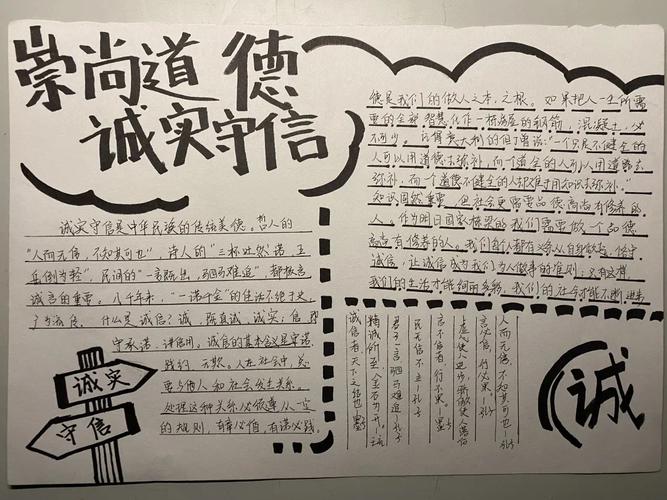 崇尚道德
诚实守信
诚实守信是中华民族的传统美德。哲人的
"人而无信，不知其可也"，诗人的"三杯吐然诺，五
岳倒为轻"，民间的"一言既出，驷马难追"，都极言
诚信的重要。八千年来，"一诺千金"的佳话不绝于史，
什么是诚信？诚，既真诚，诚实；信，既
守承诺，讲信用。诚信的基本含义是守诺、
践约、无欺。人在社会中，总
要与他人和社会发生关系。
处理这种关系必须遵从一定
的规则，有章必循，有诺必践。
诚实
守信
德是我们的做人之本，之根。如果把人一生所需
要的全部智慧化作一桥梁的钢筋，混凝土，
不可少。记得意大利的但丁曾说："一个知识不健全的
人可以用道德去弥补，而一个道德不健全的人却难于用知识去弥补。"
知识固然重要，但社会更需要品德高尚有修养的
人。作为明日国家栋梁的我们需要做一个品德
高尚有修养的人。我们每人都有义务从自身做起，恪守
诚信，让诚信成为我们为人做事的准则；只有这样，
我们的生活才能绚丽多彩，我们的社会才能不断进步
人而无信，不知其可也—孔子
言必信，行必果—孔子
虚心使人进步，骄傲使人落后
言不信者，行不果—墨子
民无信不立—孔子
君子一言，驷马难追—孔子
精诚所至，金石为开
诚信者，天下之结也
诚